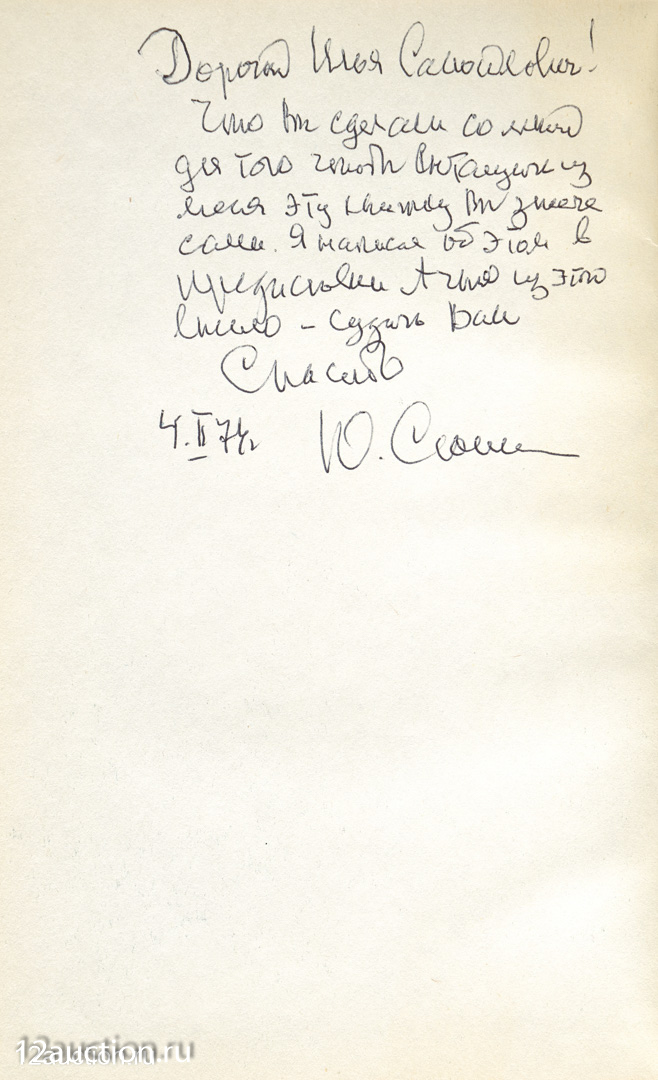 Дорогой Илья Самойлович!
Что Вы сделали со мной
для того чтобы вытащить из
меня эту книжку Вы знаете
сами. Я написал об этом в
предисловии А что из этого
вышло – судить Вам
Спасибо
4.II 74г Ю.
12auction.ru